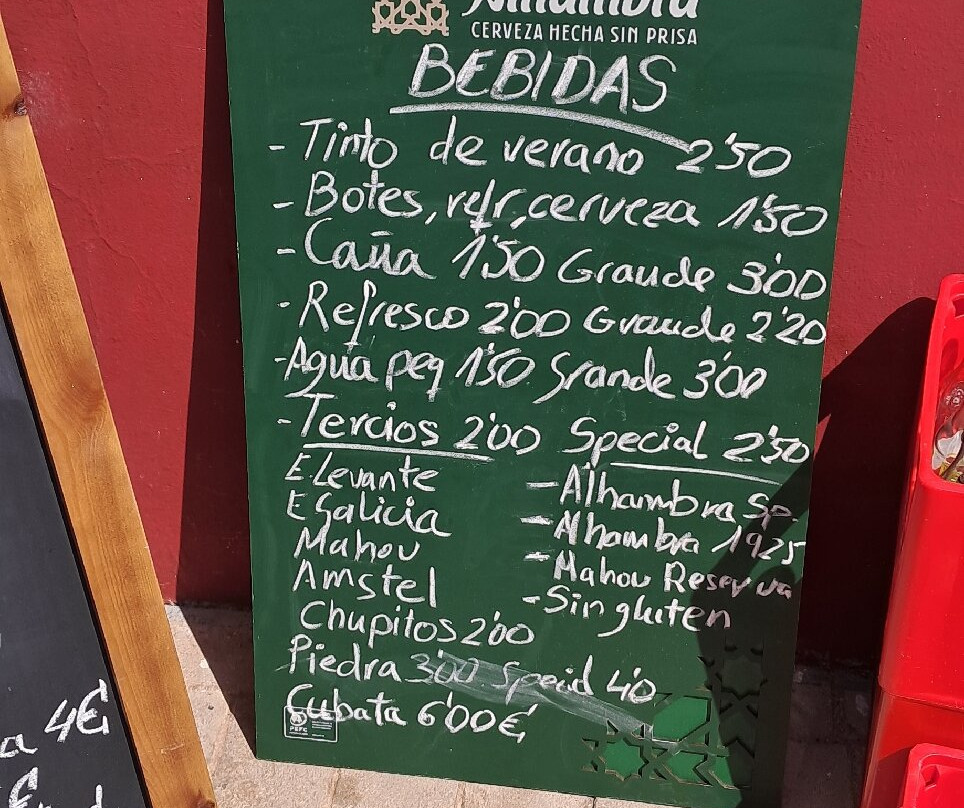 Alhambra
CERVEZA HECHA SIN PRISA
BEBIDAS
- Tinto de verano 2'50
- Botes, refr, cerveza 1'50
- Caña 1'50 Grande 3'00
- Refresco 2'00 Grande 2'20
- Agua peq 1'50 Grande 3'00
- Tercios 2'00 Special 2'50
E.Levante
E Galicia
Mahou
Amstel
- Alhambra Sp.
- Alhambra 1925
- Mahou Reserva
- Sin gluten
Chupitos 2'00
Piedra 3'00 Special 4'0
Cubata 6'00€
PEFC
a 4€
€